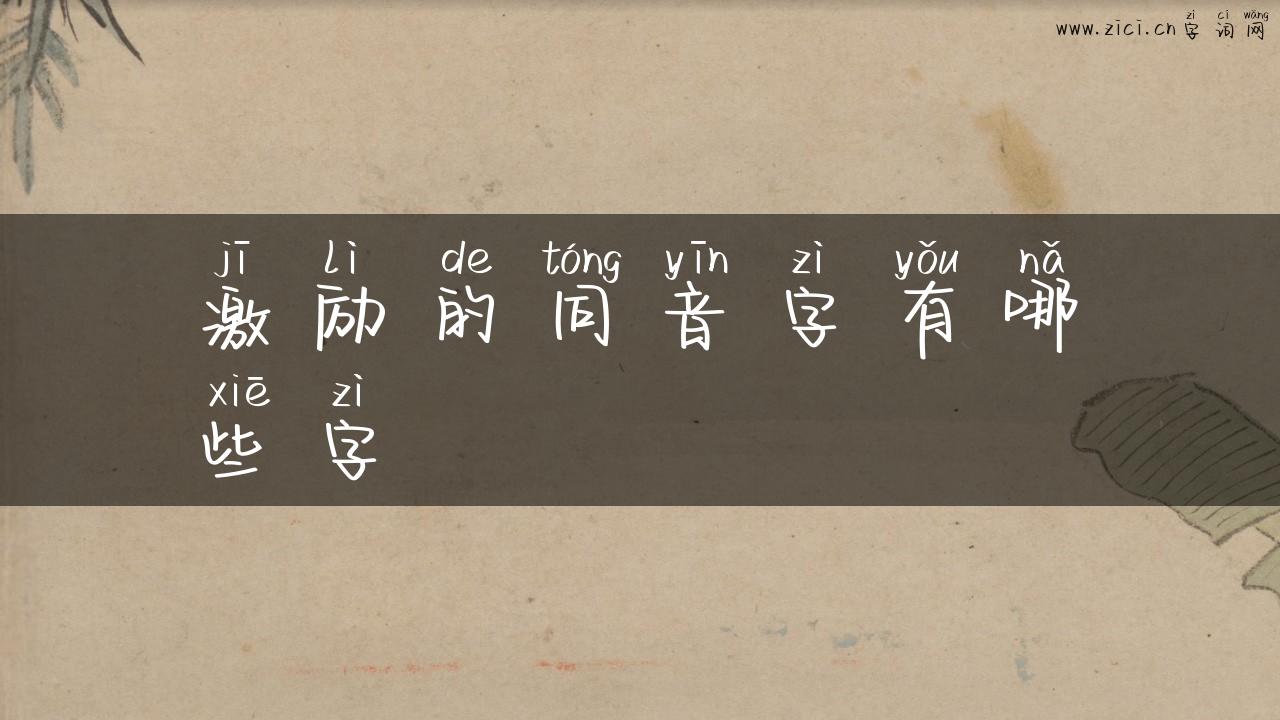 zì cí wǎng
www.zici.cn 字词网
jī lì de tóng yīn zì yǒu nǎ
激励的同音字有哪
xiē zì
些字